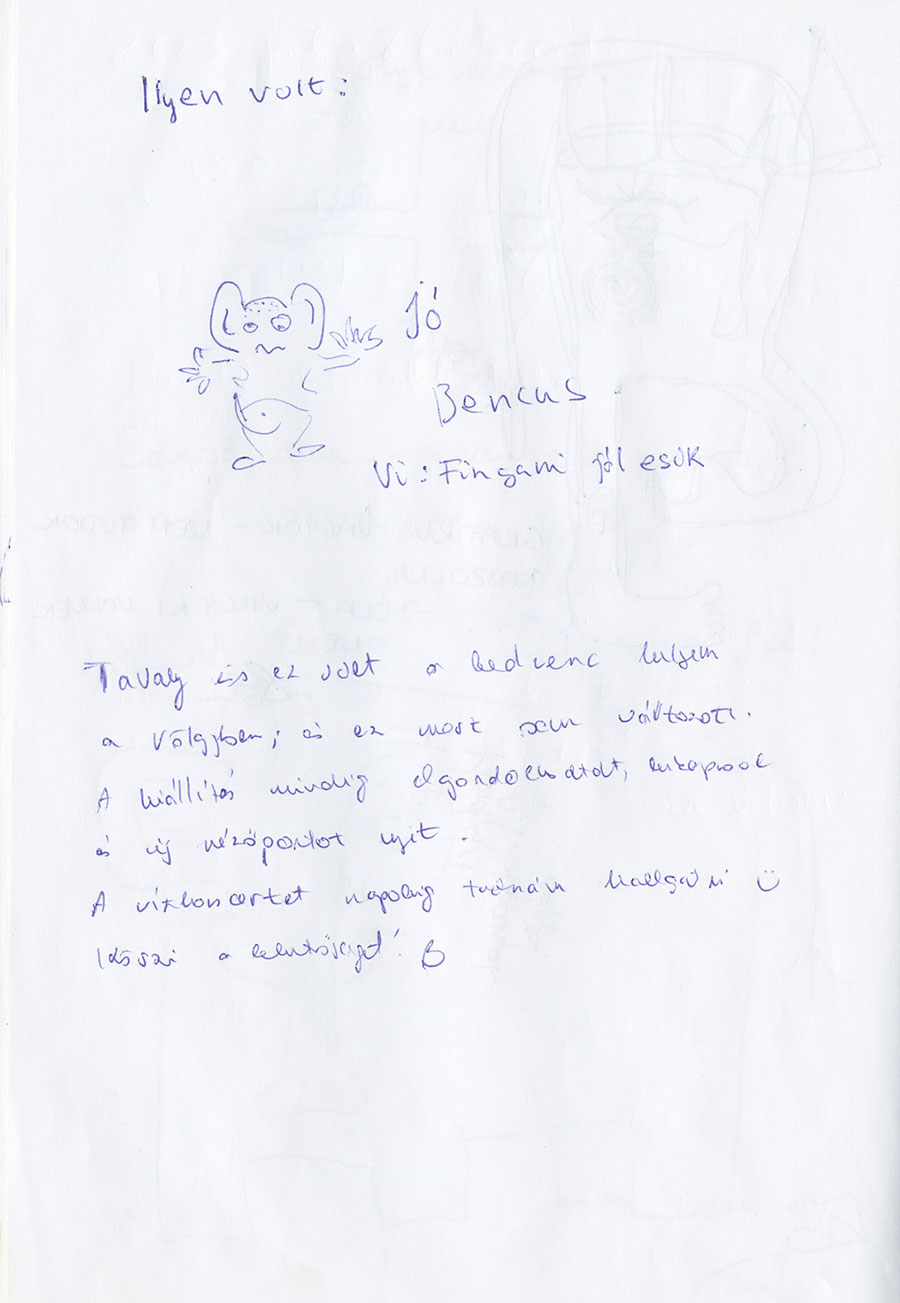 Ilyen volt:
Jó
Bencus
Vi: Fingani jól esik
Tavaly is ez volt a kedvenc helyem
a völgyben, és ez most sem változott.
A kiállítás mindig elgondolkodtat, kikapcsol
és új nézőpontot nyit.
A vízkoncertet napokig tudnám hallgatni
Köszi a lehetőséget! B